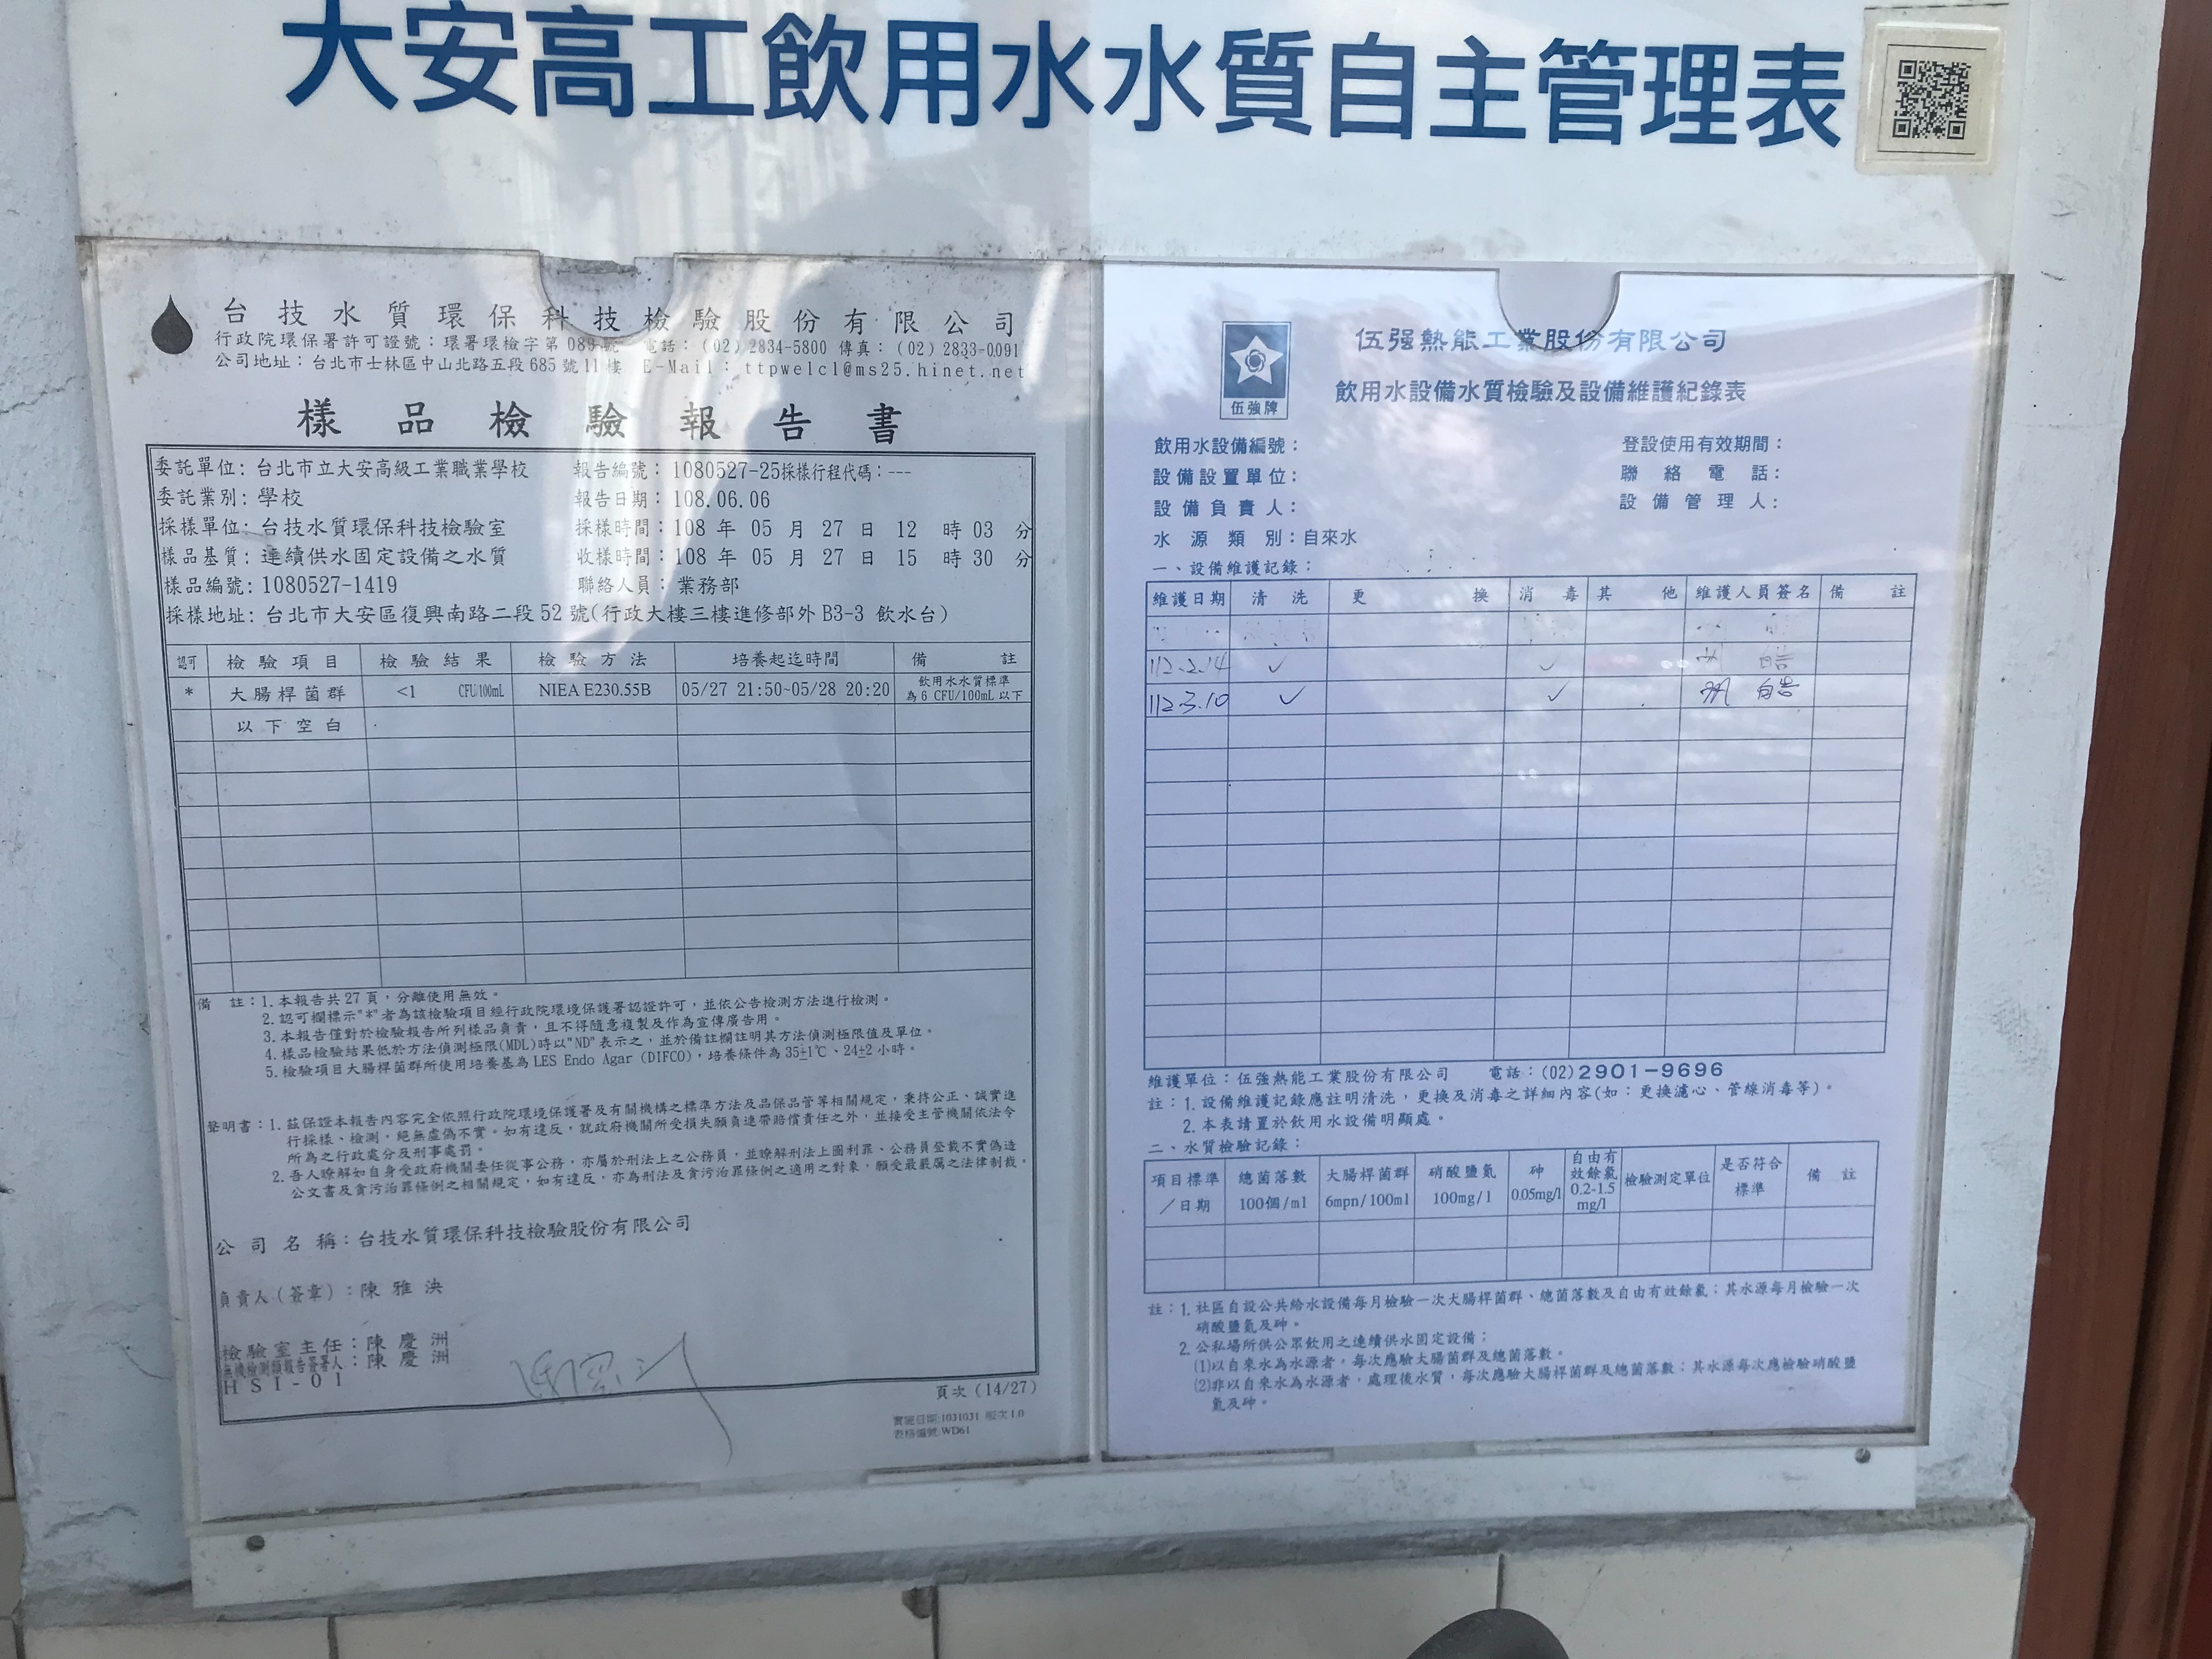 大安高工飲用水水質自主管理表
台技水質環保科技檢驗股份有限公司
行政院環保署許可證號：環署環檢字第 089 號 電話：(02) 2834-5800 傳真：(02) 2833-0091
公司地址：台北市士林區中山北路五段 685 號 11 樓 E-Mail：ttpwelcl@ms25.hinet.net
樣品檢驗報告書
委託單位：台北市立大安高級工業職業學校 報告編號：1080527-25採樣行程代碼：---
委託業別：學校 報告日期：108.06.06
採樣單位：台技水質環保科技檢驗室 採樣時間：108 年 05 月 27 日 12 時 03 分
樣品基質：連續供水固定設備之水質 收樣時間：108 年 05 月 27 日 15 時 30 分
樣品編號：1080527-1419 聯絡人員：業務部
採樣地址：台北市大安區復興南路二段 52 號(行政大樓三樓進修部外 B3-3 飲水台)
認可 檢驗項目 檢驗結果 檢驗方法 培養起迄時間 備註
* 大腸桿菌群 <1 CFU/100mL NIEA E230.55B 05/27 21:50~05/28 20:20 飲用水水質標準
為 6 CFU/100mL 以下
以下空白
備 註：1. 本報告共 27 頁，分離使用無效。
2. 認可欄標示"*"者為該檢驗項目經行政院環境保護署認證許可，並依公告檢測方法進行檢測。
3. 本報告僅對於檢驗報告所列樣品負責，且不得隨意複製及作為宣傳廣告用。
4. 樣品檢驗結果低於方法偵測極限(MDL)時以"ND"表示之，並於備註欄註明其方法偵測極限值及單位。
5. 檢驗項目大腸桿菌群所使用培養基為 LES Endo Agar (DIFCO)，培養條件為 35±1℃、24±2 小時。
聲明書：1. 茲保證本報告內容完全依照行政院環境保護署及有關機構之標準方法及品保品管等相關規定，秉持公正、誠實進
行採樣、檢測，絕無虛偽不實。如有違反，就政府機關所受損失願負連帶賠償責任之外，並接受主管機關依法令
所為之行政處分及刑事處罰。
2. 吾人瞭解如自身受政府機關委任從事公務，亦屬於刑法上之公務員，並瞭解刑法上圖利罪、公務員登載不實偽造
公文書及貪污治罪條例之相關規定，如有違反，亦為刑法及貪污治罪條例之適用之對象，願受最嚴厲之法律制裁。
公司名稱：台技水質環保科技檢驗股份有限公司
負責人(簽章)：陳雅泱
檢驗室主任：陳慶洲
無機檢測類報告簽署人：陳慶洲
HSI-01
頁次 (14/27)
實施日期:1031031 版次 1.0
表格編號:WD61
伍強牌
伍強熱能工業股份有限公司
飲用水設備水質檢驗及設備維護紀錄表
飲用水設備編號： 登設使用有效期間：
設備設置單位： 聯絡電話：
設備負責人： 設備管理人：
水源類別：自來水
一、設備維護記錄：
維護日期 清洗 更換 消毒 其他 維護人員簽名 備註
112.2.14 ✓ ✓
112.3.10 ✓ ✓
維護單位：伍強熱能工業股份有限公司 電話：(02)2901-9696
註：1. 設備維護記錄應註明清洗，更換及消毒之詳細內容(如：更換濾心、管線消毒等)。
2. 本表請置於飲用水設備明顯處。
二、水質檢驗記錄：
項目標準／日期 總菌落數 100個/ml 大腸桿菌群 6mpn/100ml 硝酸鹽氮 100mg/l 砷 0.05mg/l 自由有效餘氯 0.2-1.5 mg/l 檢驗測定單位 是否符合標準 備註
註：1. 社區自設公共給水設備每月檢驗一次大腸桿菌群、總菌落數及自由有效餘氯；其水源每月檢驗一次
硝酸鹽氮及砷。
2. 公私場所供公眾飲用之連續供水固定設備：
(1)以自來水為水源者，每次應驗大腸桿菌群及總菌落數。
(2)非以自來水為水源者，處理後水質，每次應驗大腸桿菌群及總菌落數；其水源每次應檢驗硝酸鹽
氮及砷。